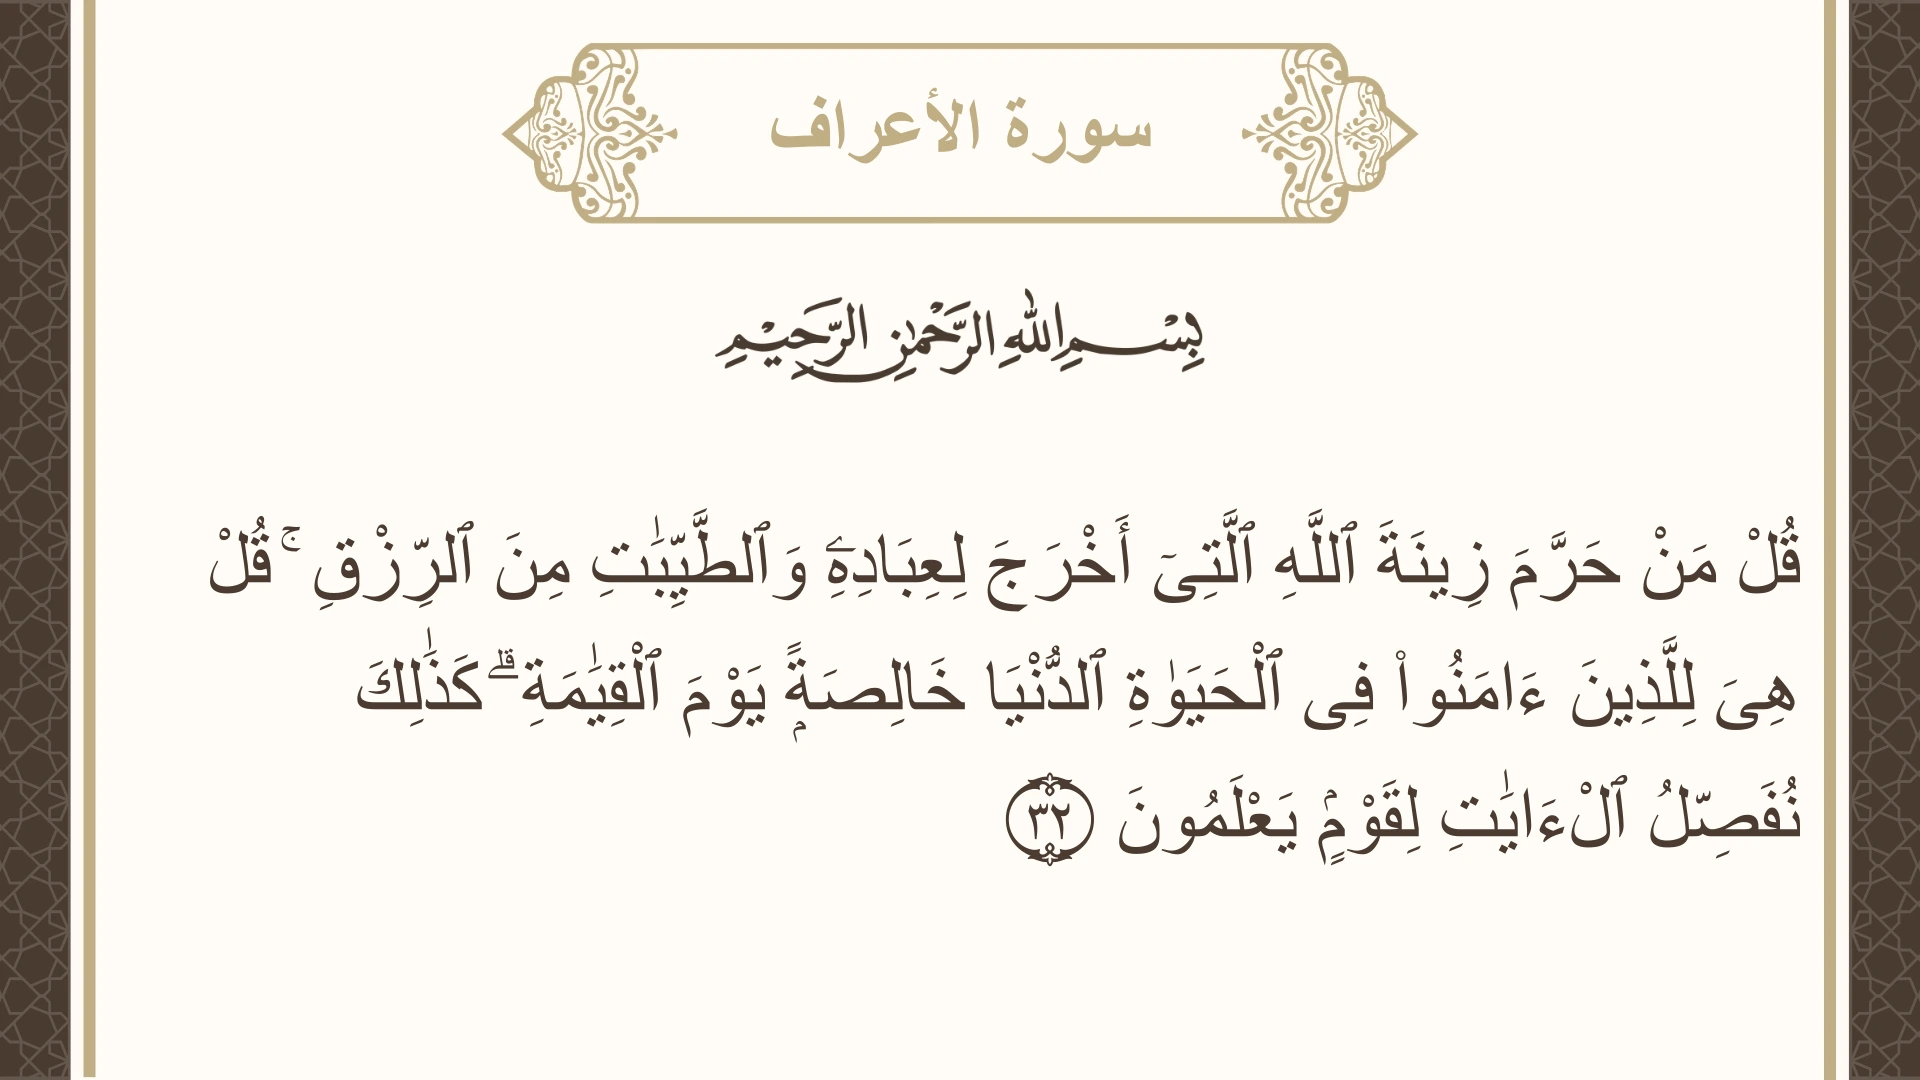 سورة الأعراف
بِسْمِ اللهِ الرَّحْمٰنِ الرَّحِيْمِ
قُلْ مَنْ حَرَّمَ زِينَةَ ٱللَّهِ ٱلَّتِىٓ أَخْرَجَ لِعِبَادِهِۦ وَٱلطَّيِّبَـٰتِ مِنَ ٱلرِّزْقِ ۚ قُلْ
هِىَ لِلَّذِينَ ءَامَنُوا۟ فِى ٱلْحَيَوٰةِ ٱلدُّنْيَا خَالِصَةًۭ يَوْمَ ٱلْقِيَـٰمَةِ ۗ كَذَٰلِكَ
نُفَصِّلُ ٱلْـَٔايَـٰتِ لِقَوْمٍۢ يَعْلَمُونَ ٣٢